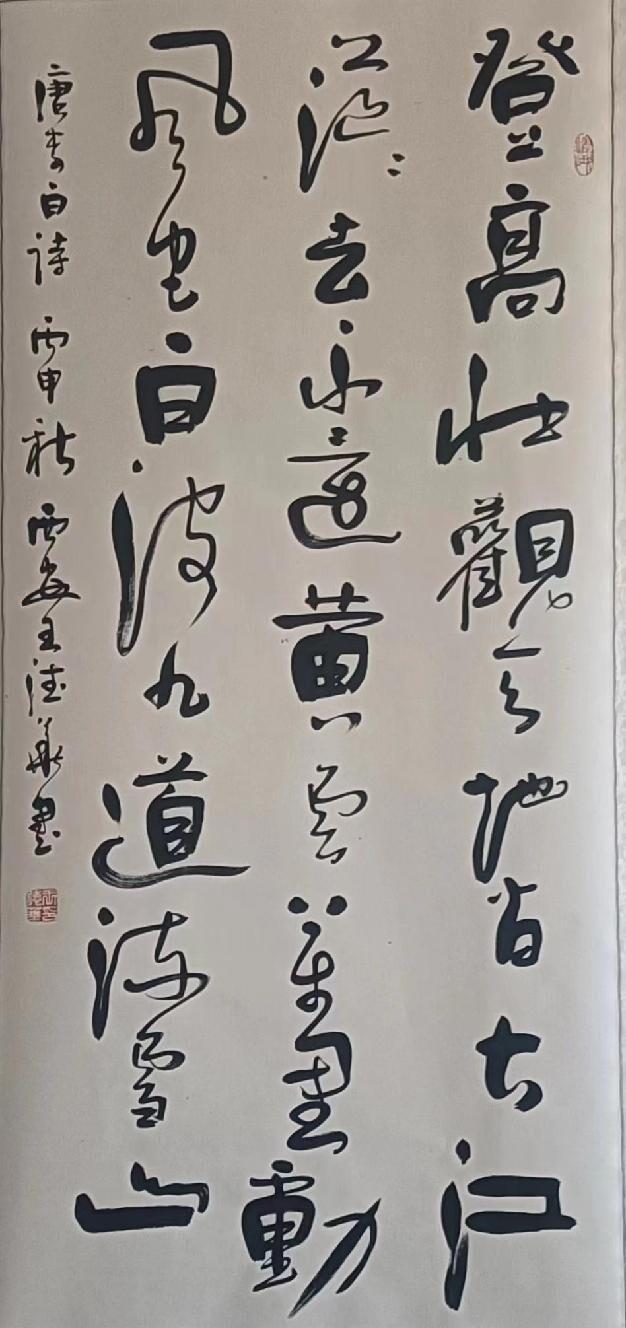 登高壮觀天地间大江
茫茫去不還黄雲萬里動
風色白波九道流雪山
唐李白诗 丙申秋 西安王德華書